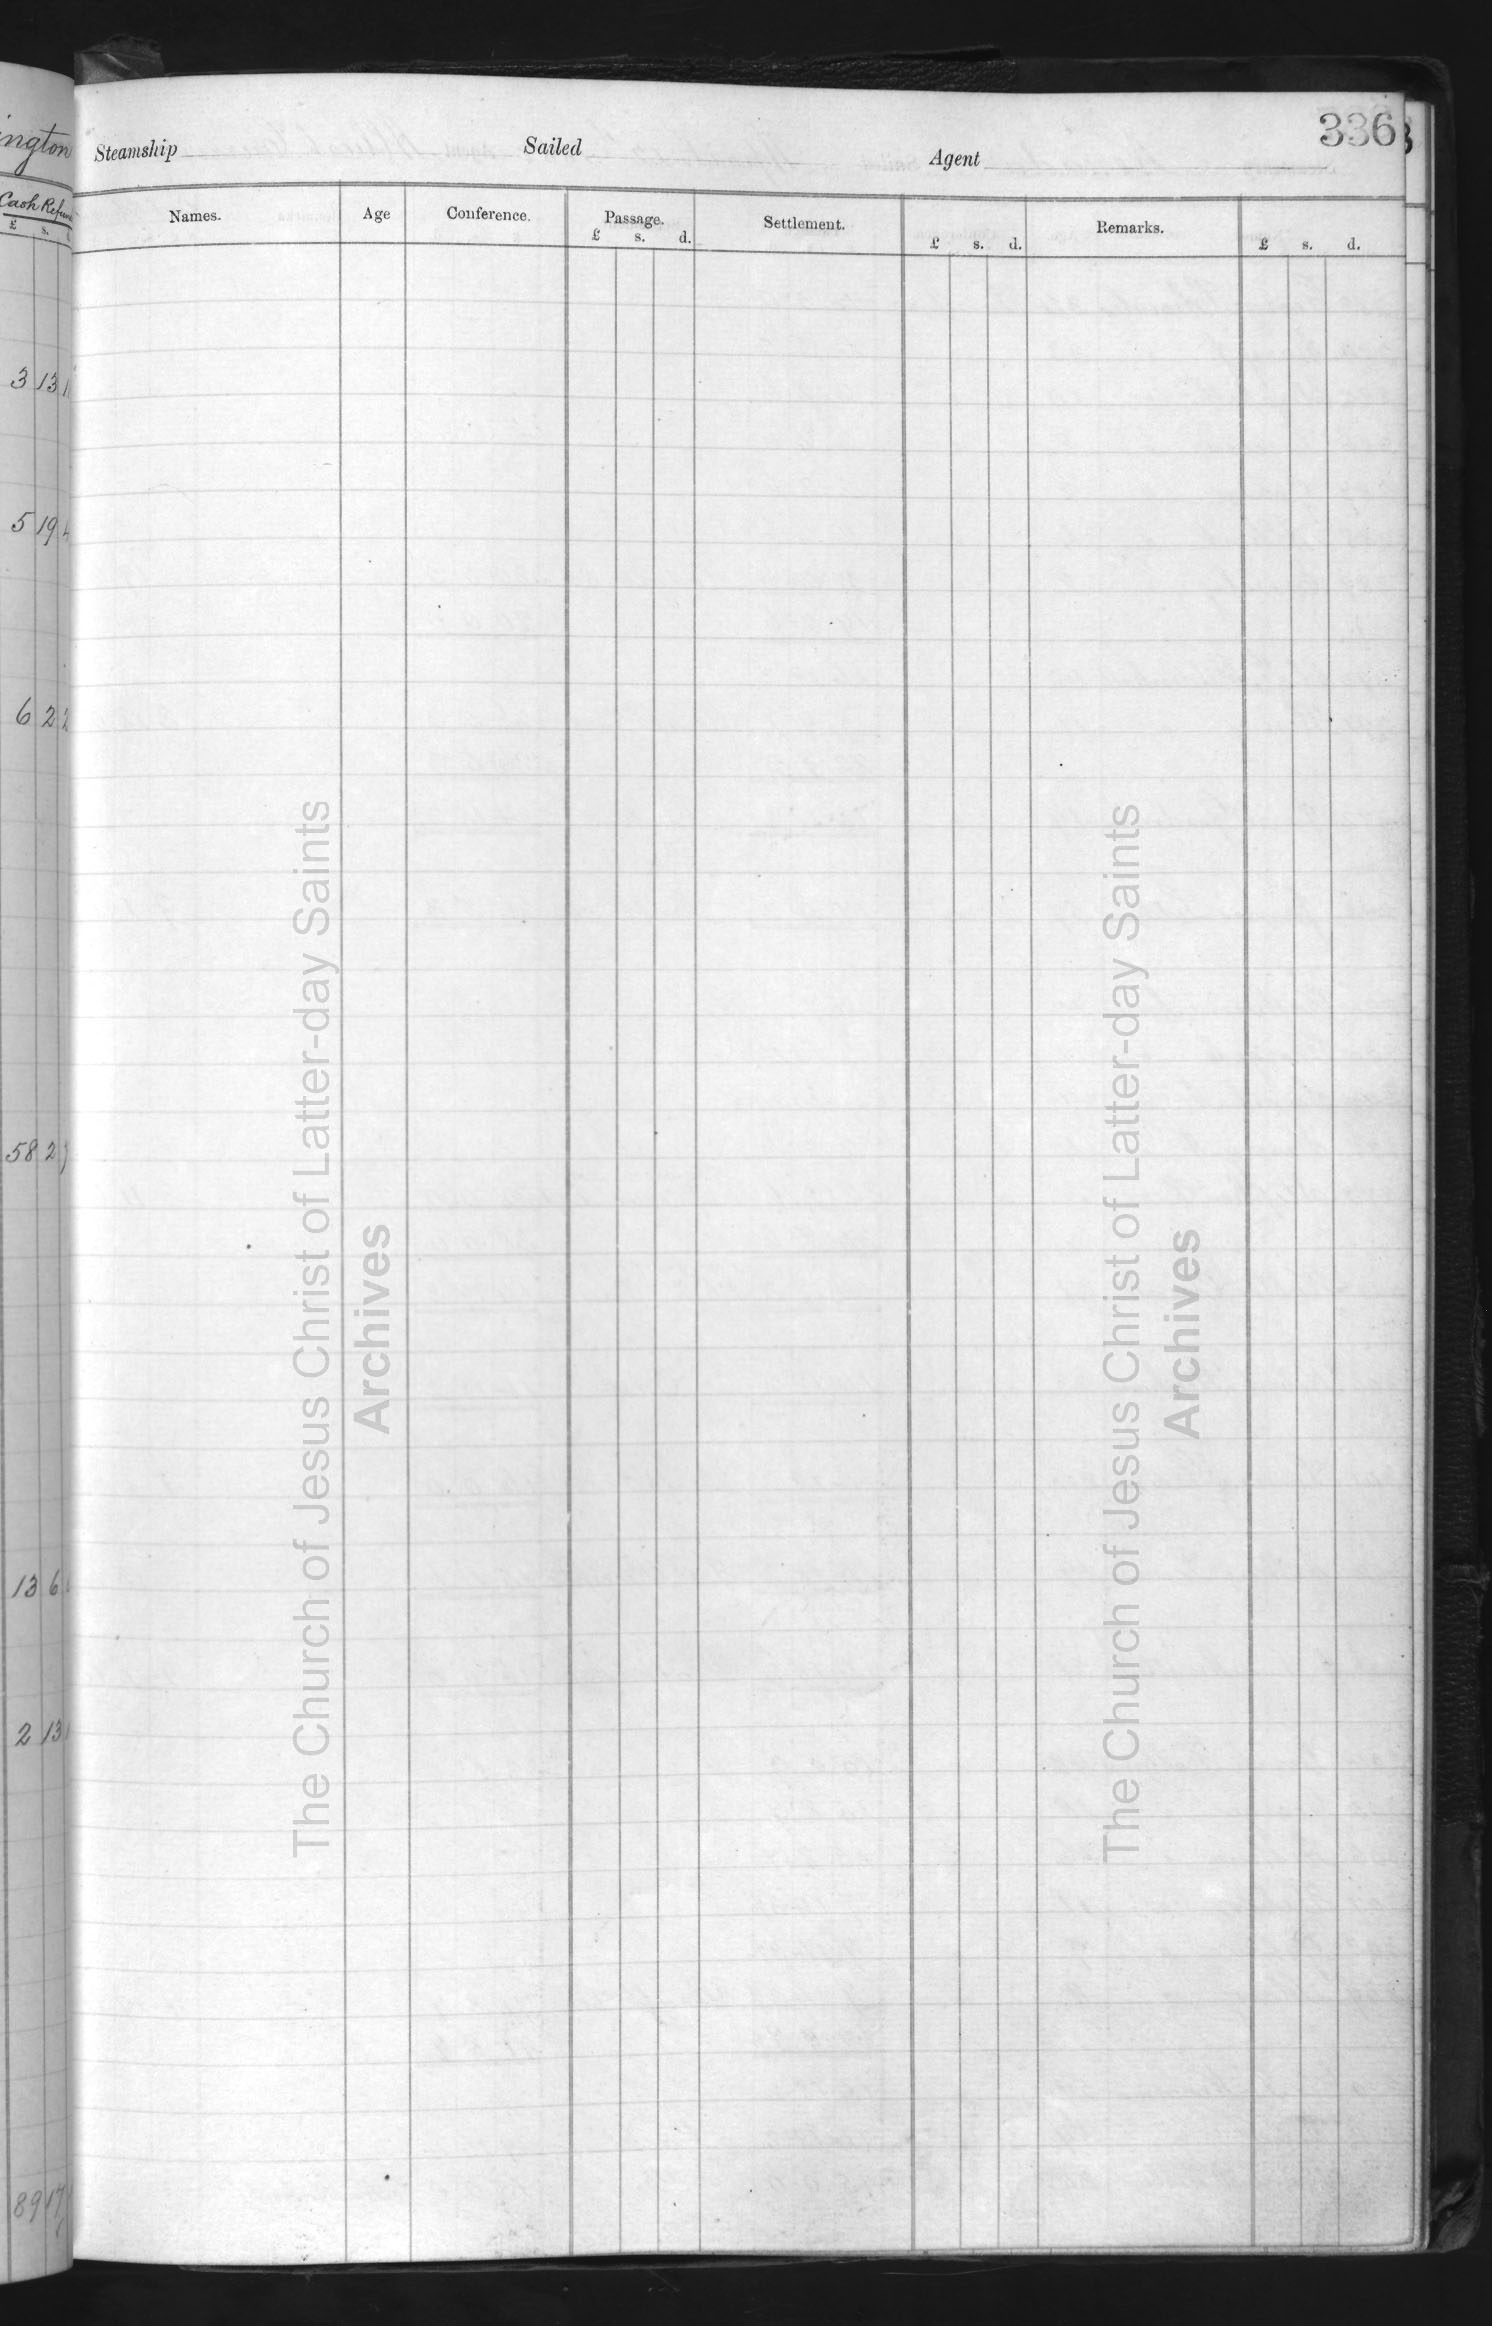 ington
Cash Refun
£ s.
3 13
5 19
6 2 2
58 2
13 6
2 13
89 17
336
Steamship Sailed Agent
Names. Age Conference. Passage. Settlement. Remarks.
£ s. d. £ s. d. £ s. d.
The Church of Jesus Christ of Latter-day Saints
Archives
The Church of Jesus Christ of Latter-day Saints
Archives